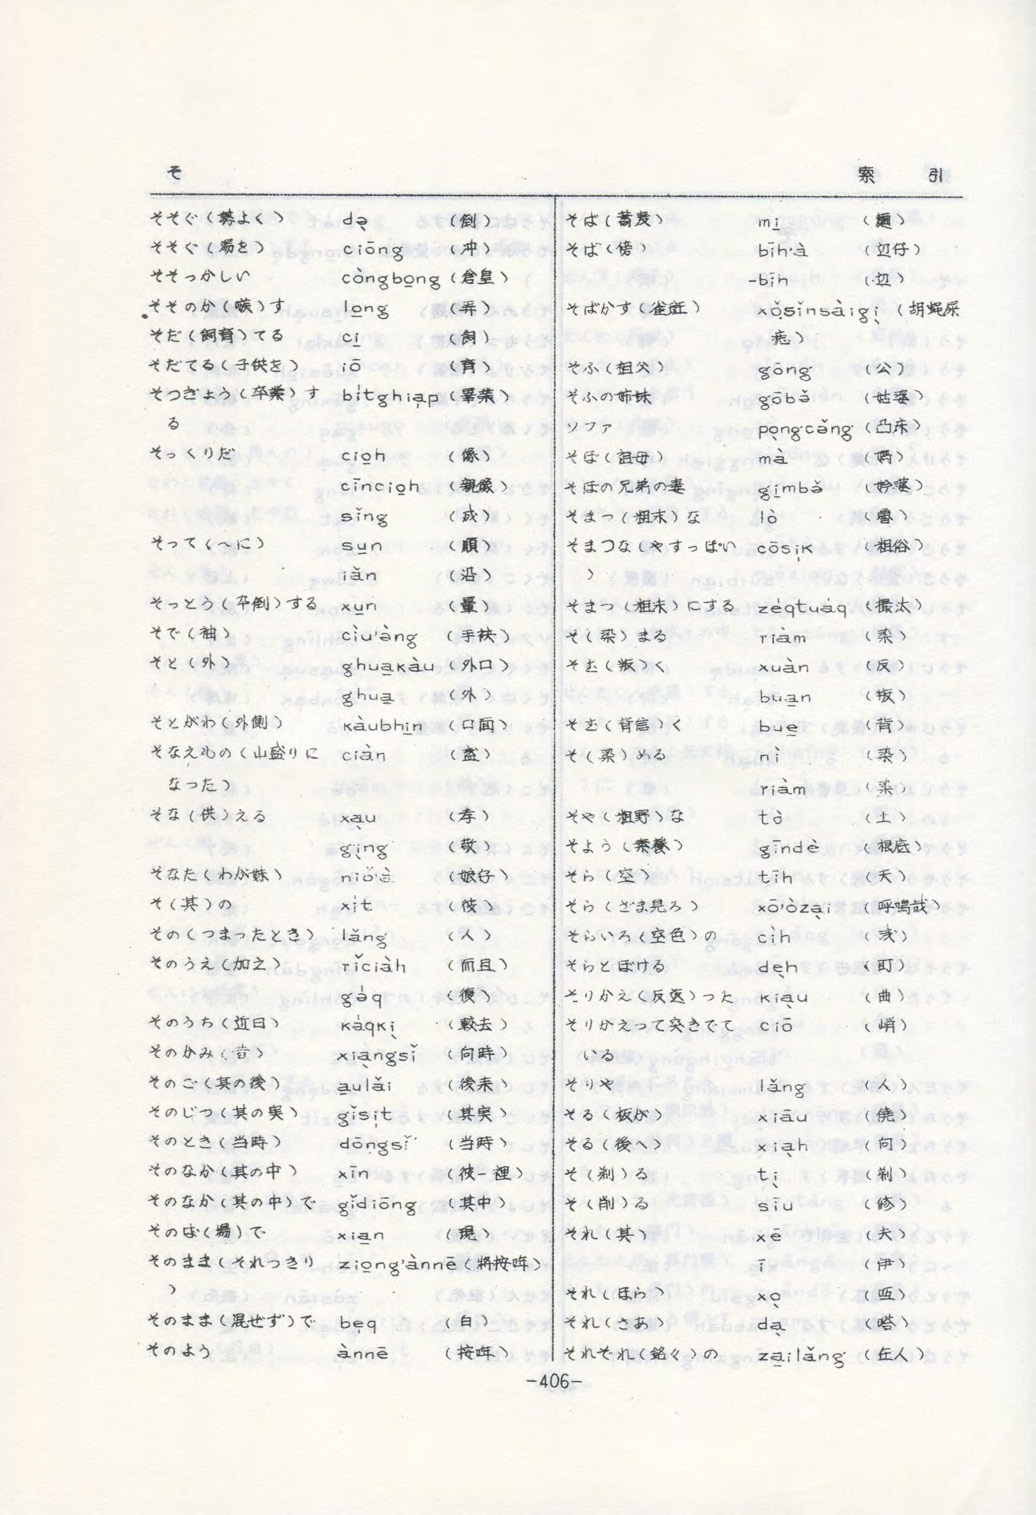 そ　索引
そそぐ(勢よく) də̱ (倒)
そそぐ(湯を) ciōng (冲)
そそっかしい còngbo̱ng (倉皇)
そそのか(嗾)す lo̱ng (弄)
そだ(飼育)てる ci̱ (飼)
そだてる(子供を) iō (育)
そつぎょう(卒業)す bítghia̍p (畢業)
る
そっくりだ cio̱h (像)
cīncio̱h (親像)
sǐng (成)
そって(〜に) su̱n (順)
iǎn (沿)
そっとう(卒倒)する xu̱n (暈)
そで(袖) cìu'àng (手䘼)
そと(外) ghua̱kàu (外口)
ghua̱ (外)
そとがわ(外側) kàubhi̱n (口面)
そなえもの(山盛りに ciàn (盞)
なった)
そな(供)える xa̱u (孝)
gi̱ng (敬)
そなた(わが妹) niǒ'à (娘仔)
そ(其)の xi̍t (彼)
その(つまったとき) lǎng (人)
そのうえ(加之) rǐciàh (而且)
gáq (復)
そのうち(近日) káqki̱ (較去)
そのかみ(昔) xia̱ngsǐ (向時)
そのご(其の後) a̱ulǎi (後来)
そのじつ(其の実) gǐsi̍t (其実)
そのとき(当時) dōngsǐ (当時)
そのなか(其の中) xīn (彼一裡)
そのなか(其の中)で gǐdiōng (其中)
そのば(場)で xia̱n (現)
そのまま(それっきり zio̱ng'ànnē (將按哖)
)
そのまま(混せず)で be̍q (白)
そのよう ànnē (按哖)
そば(蕎麦) mi̱ (麺)
そば(傍) bīh'à (辺仔)
-bīh (辺)
そばかす(雀斑) xǒ̱sǐnsàigi̱ (胡蝇屎
痣)
そふ(祖父) gōng (公)
そふの姉妹 gōbǎ (姑婆)
ソファ po̱ngcǎng (凸床)
そぼ(祖母) mà (媽)
そぼの兄弟の妻 gi̱mbǎ (妗婆)
そまつ(粗末)な lò (魯)
そまつな(やすっぽい cōsi̍k (粗俗)
)
そまつ(粗末)にする zéqtuáq (撮太)
そ(染)まる riàm (染)
そむ(叛)く xuàn (反)
bua̱n (叛)
そむ(背信)く bue̱ (背)
そ(染)める nì (染)
riàm (染)
そや(粗野)な tò (土)
そよう(素養) gīndè (根底)
そら(空) tīh (天)
そら(ざま見ろ) xō'òza̱i (呼嗚哉)
そらいろ(空色)の cìh (浅)
そらとぼける de̱h (盯)
そりかえ(反返)った kia̱u (曲)
そりかえって突きでて ciō (峭)
いる
そりや lǎng (人)
そる(板が) xiāu (僥)
そる(後へ) xia̱h (向)
そ(剃)る ti̱ (剃)
そ(削)る sīu (修)
それ(其) xē (夫)
ī (伊)
それ(ほら) xo̱ (㗅)
それ(さあ) da̱ (嗒)
それそれ(銘々)の za̱ilǎng (在人)
-406-